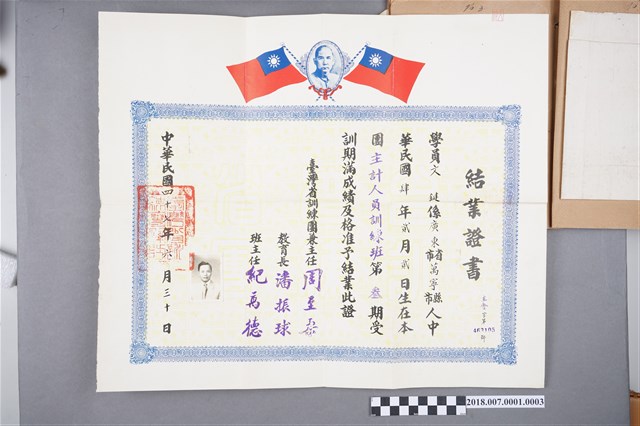 結業證書
學員文 健係廣東省市萬寧縣市人中
華民國肆年貳月貳日生在本
團主計人員訓練班第叁期受
訓期滿成績及格准予結業此證
臺灣省訓練團兼主任 周至柔
教育長 潘振球
班主任 紀萬德
中華民國四十八年 月三十日
2018.007.0001.0003